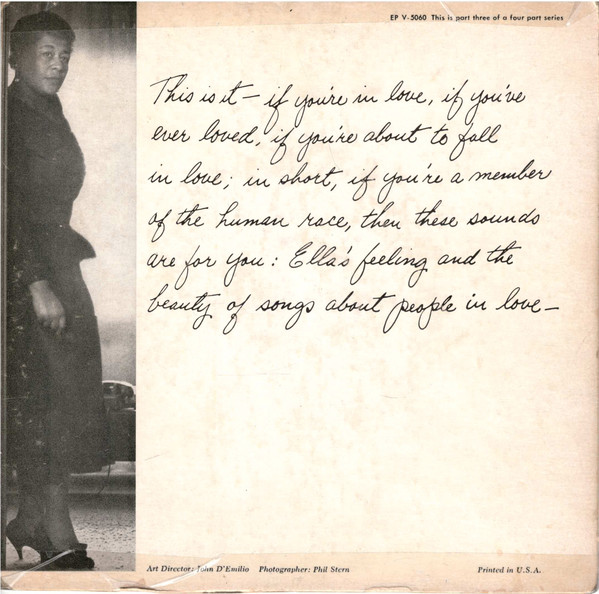 EP V-5060 This is part three of a four part series
This is it — if you're in love, if you've
ever loved, if you're about to fall
in love; in short, if you're a member
of the human race, then these sounds
are for you: Ella's feeling and the
beauty of songs about people in love —
Art Director: John D'Emilio Photographer: Phil Stern Printed in U.S.A.